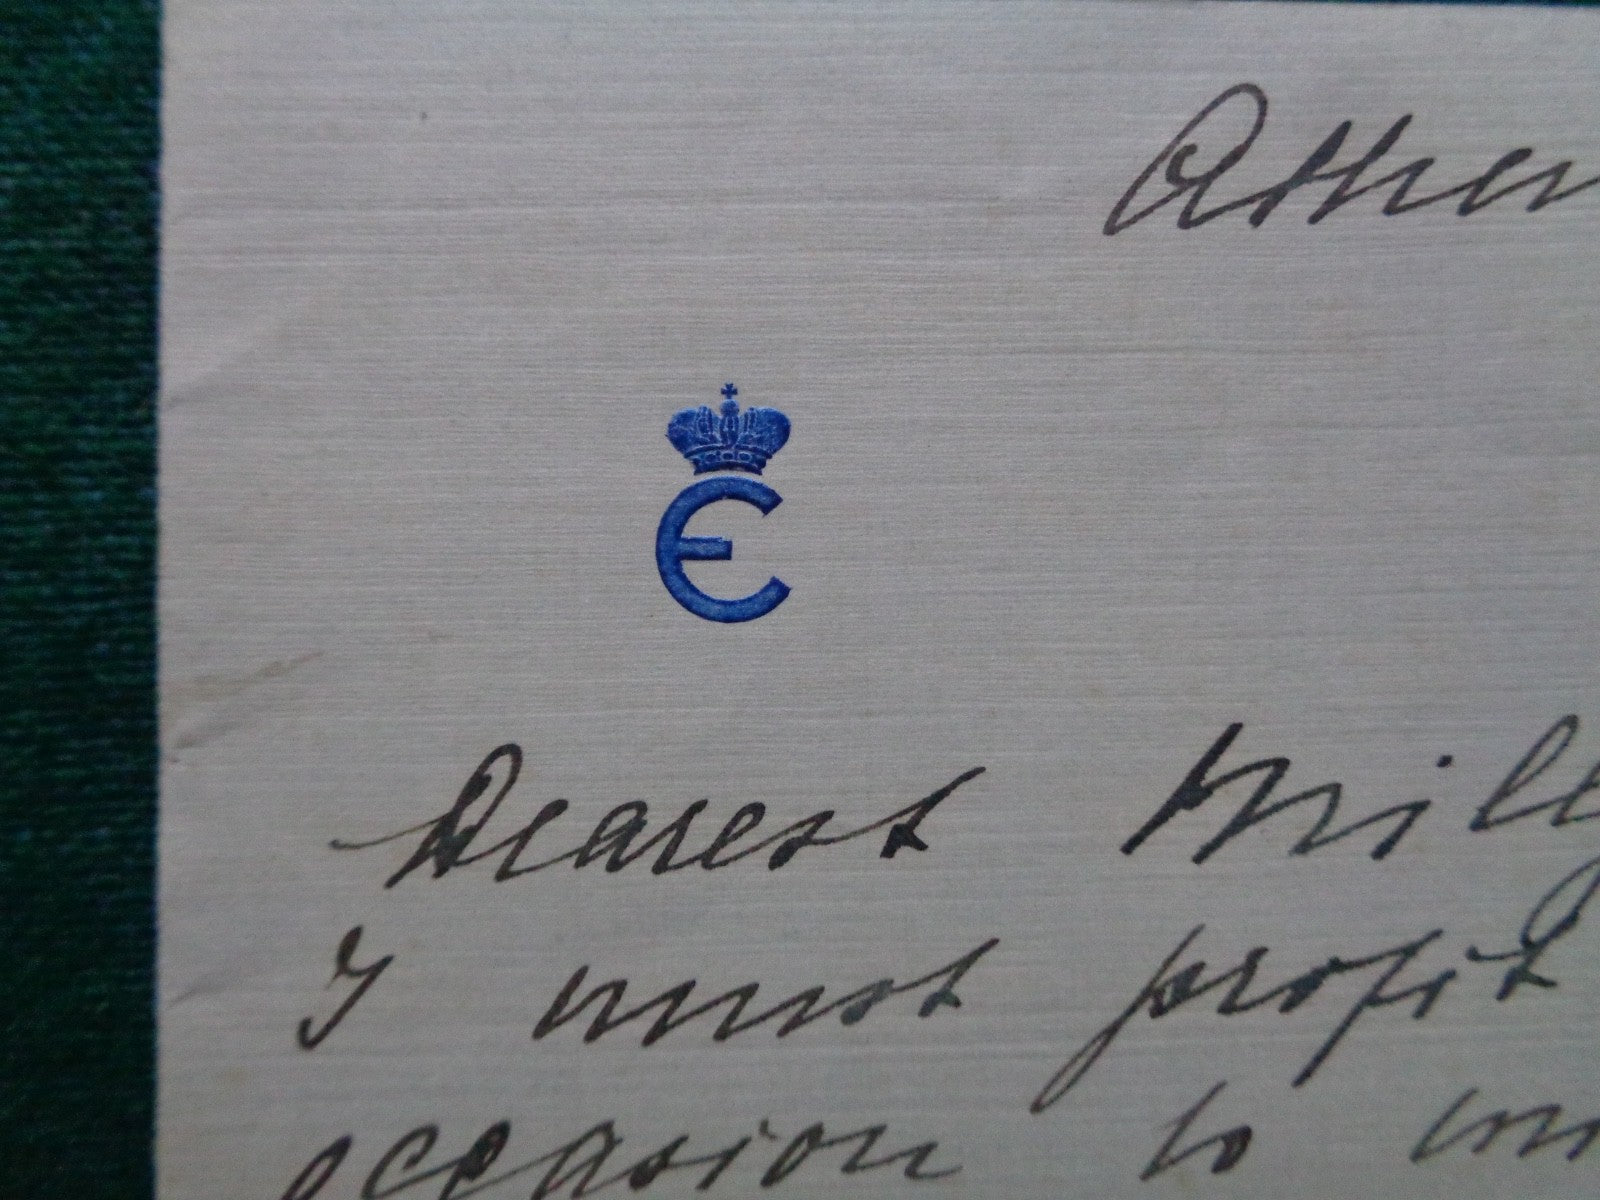 Athen
Є
Dearest Milly
I must profit
occasion to